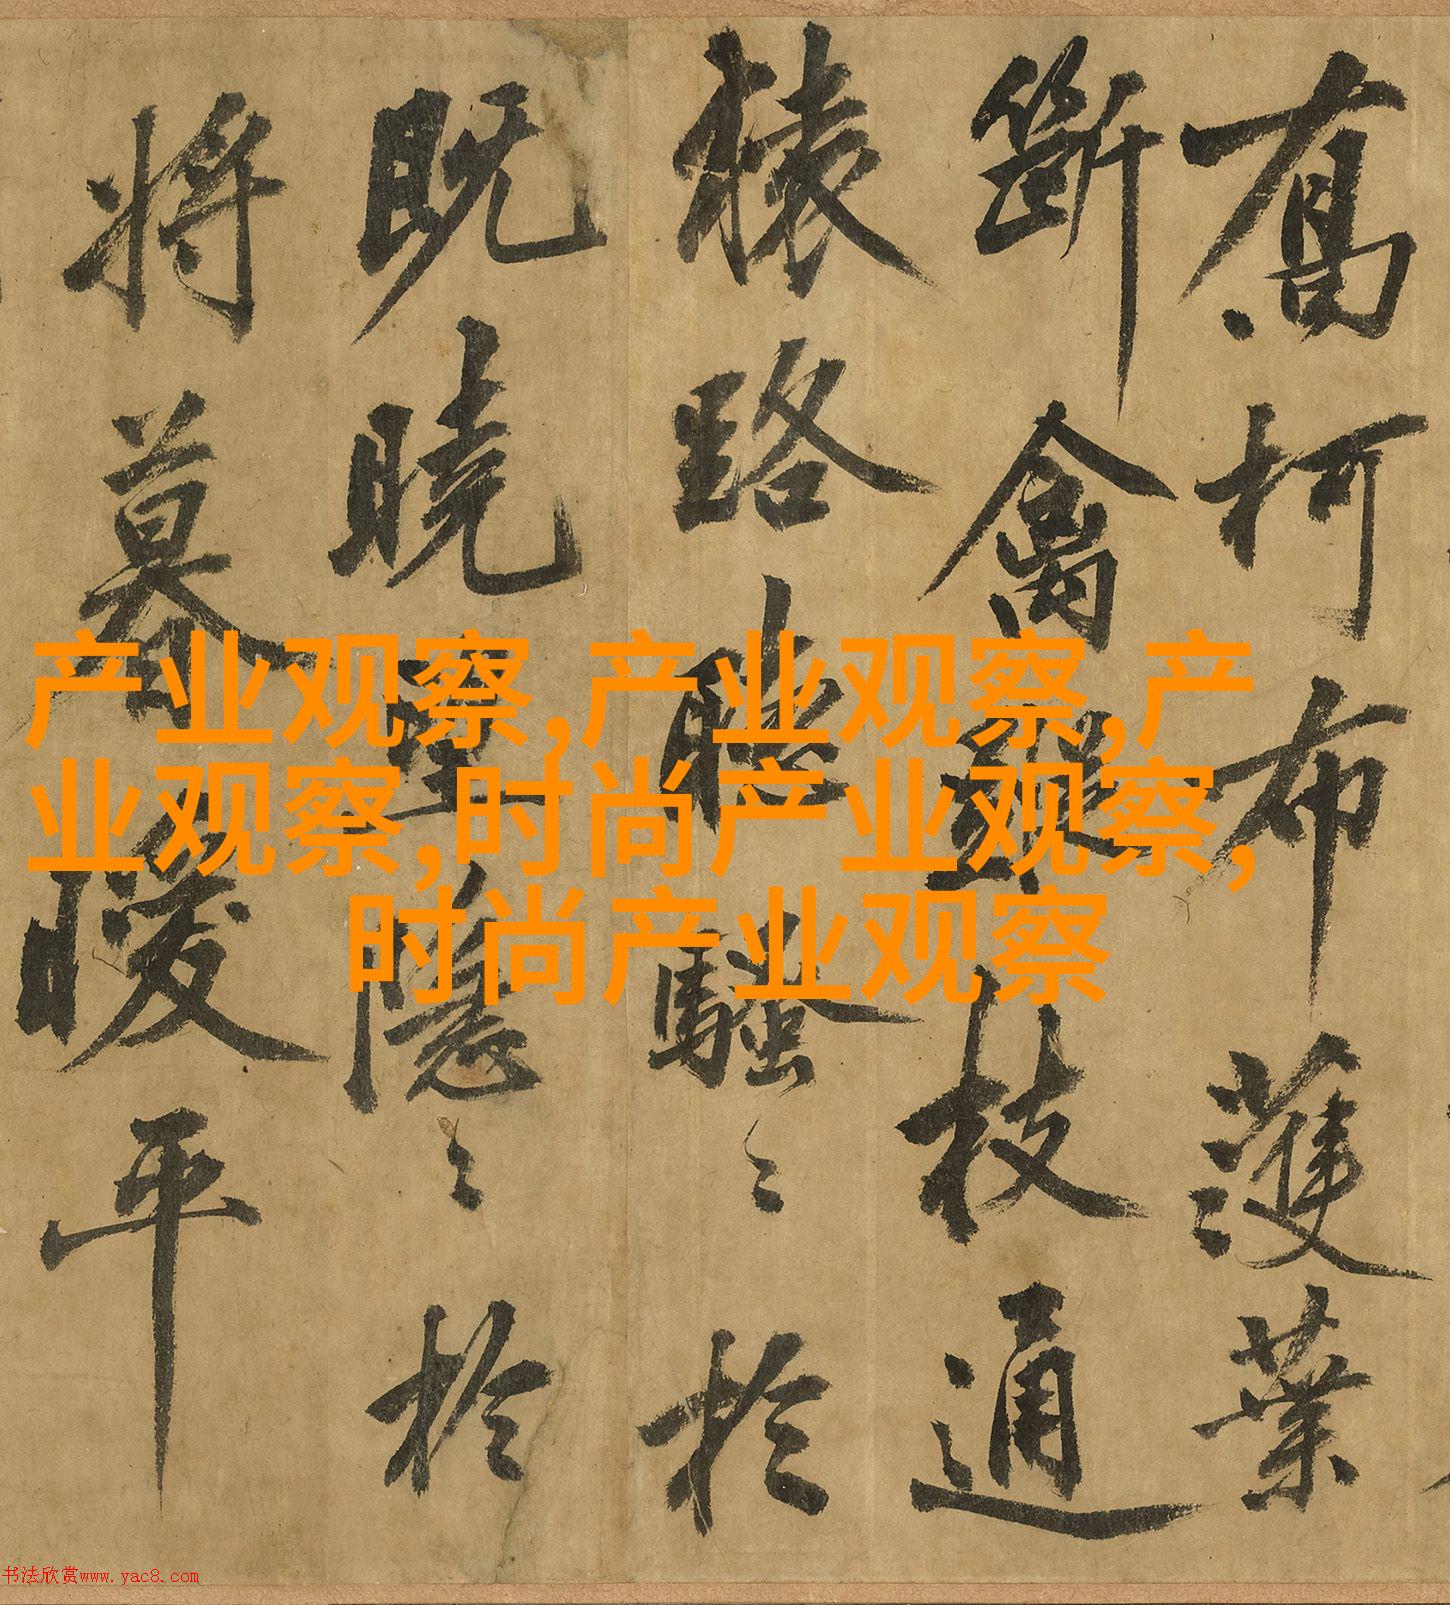 喬柯布濩葉
斷禽蹤枝通
猿路聽騷〻於
既曉望隱〻於
將暮曖平
产业观察,产业观察,产
业观察,时尚产业观察,
时尚产业观察
书法欣赏www.yac8.com